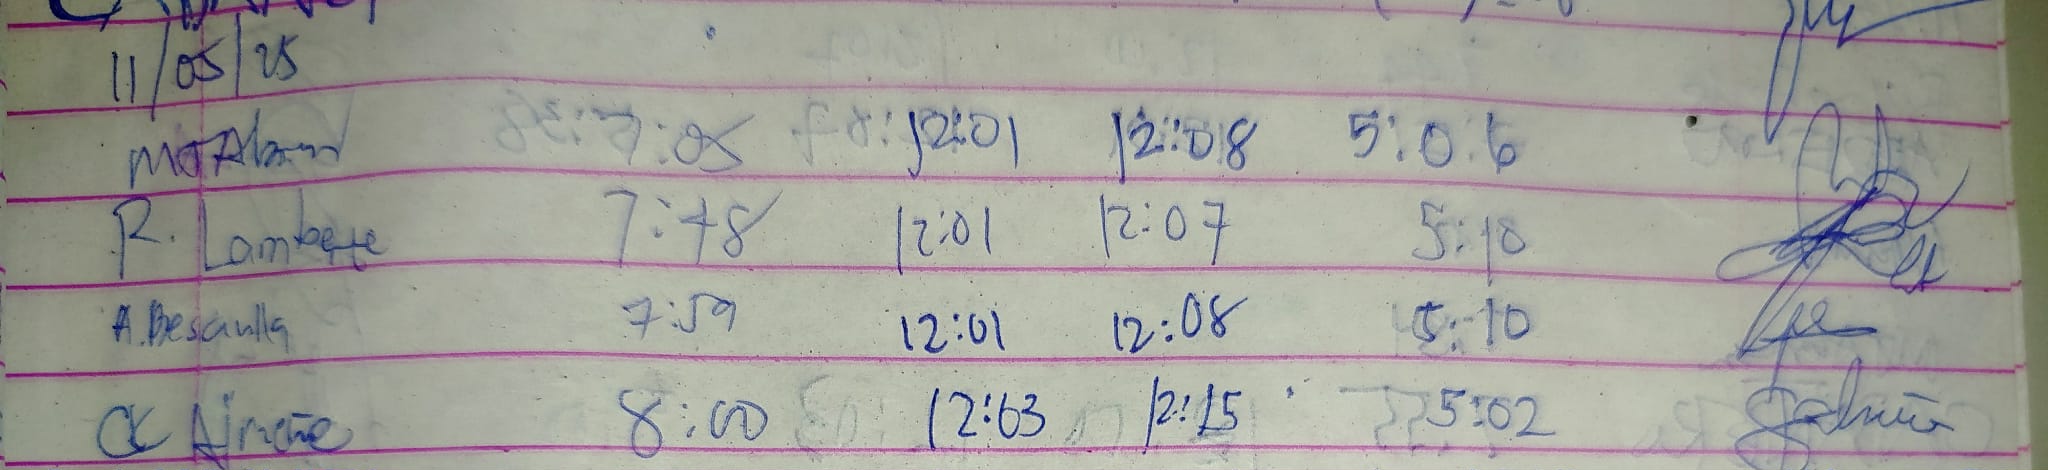 11/05/25
MJ Alam 7:05 12:01 12:08 5:06
R. Lambete 7:48 12:01 12:07 5:10
A. Besaulla 7:59 12:01 12:08 5:10
CK 8:00 12:03 12:15 5:02